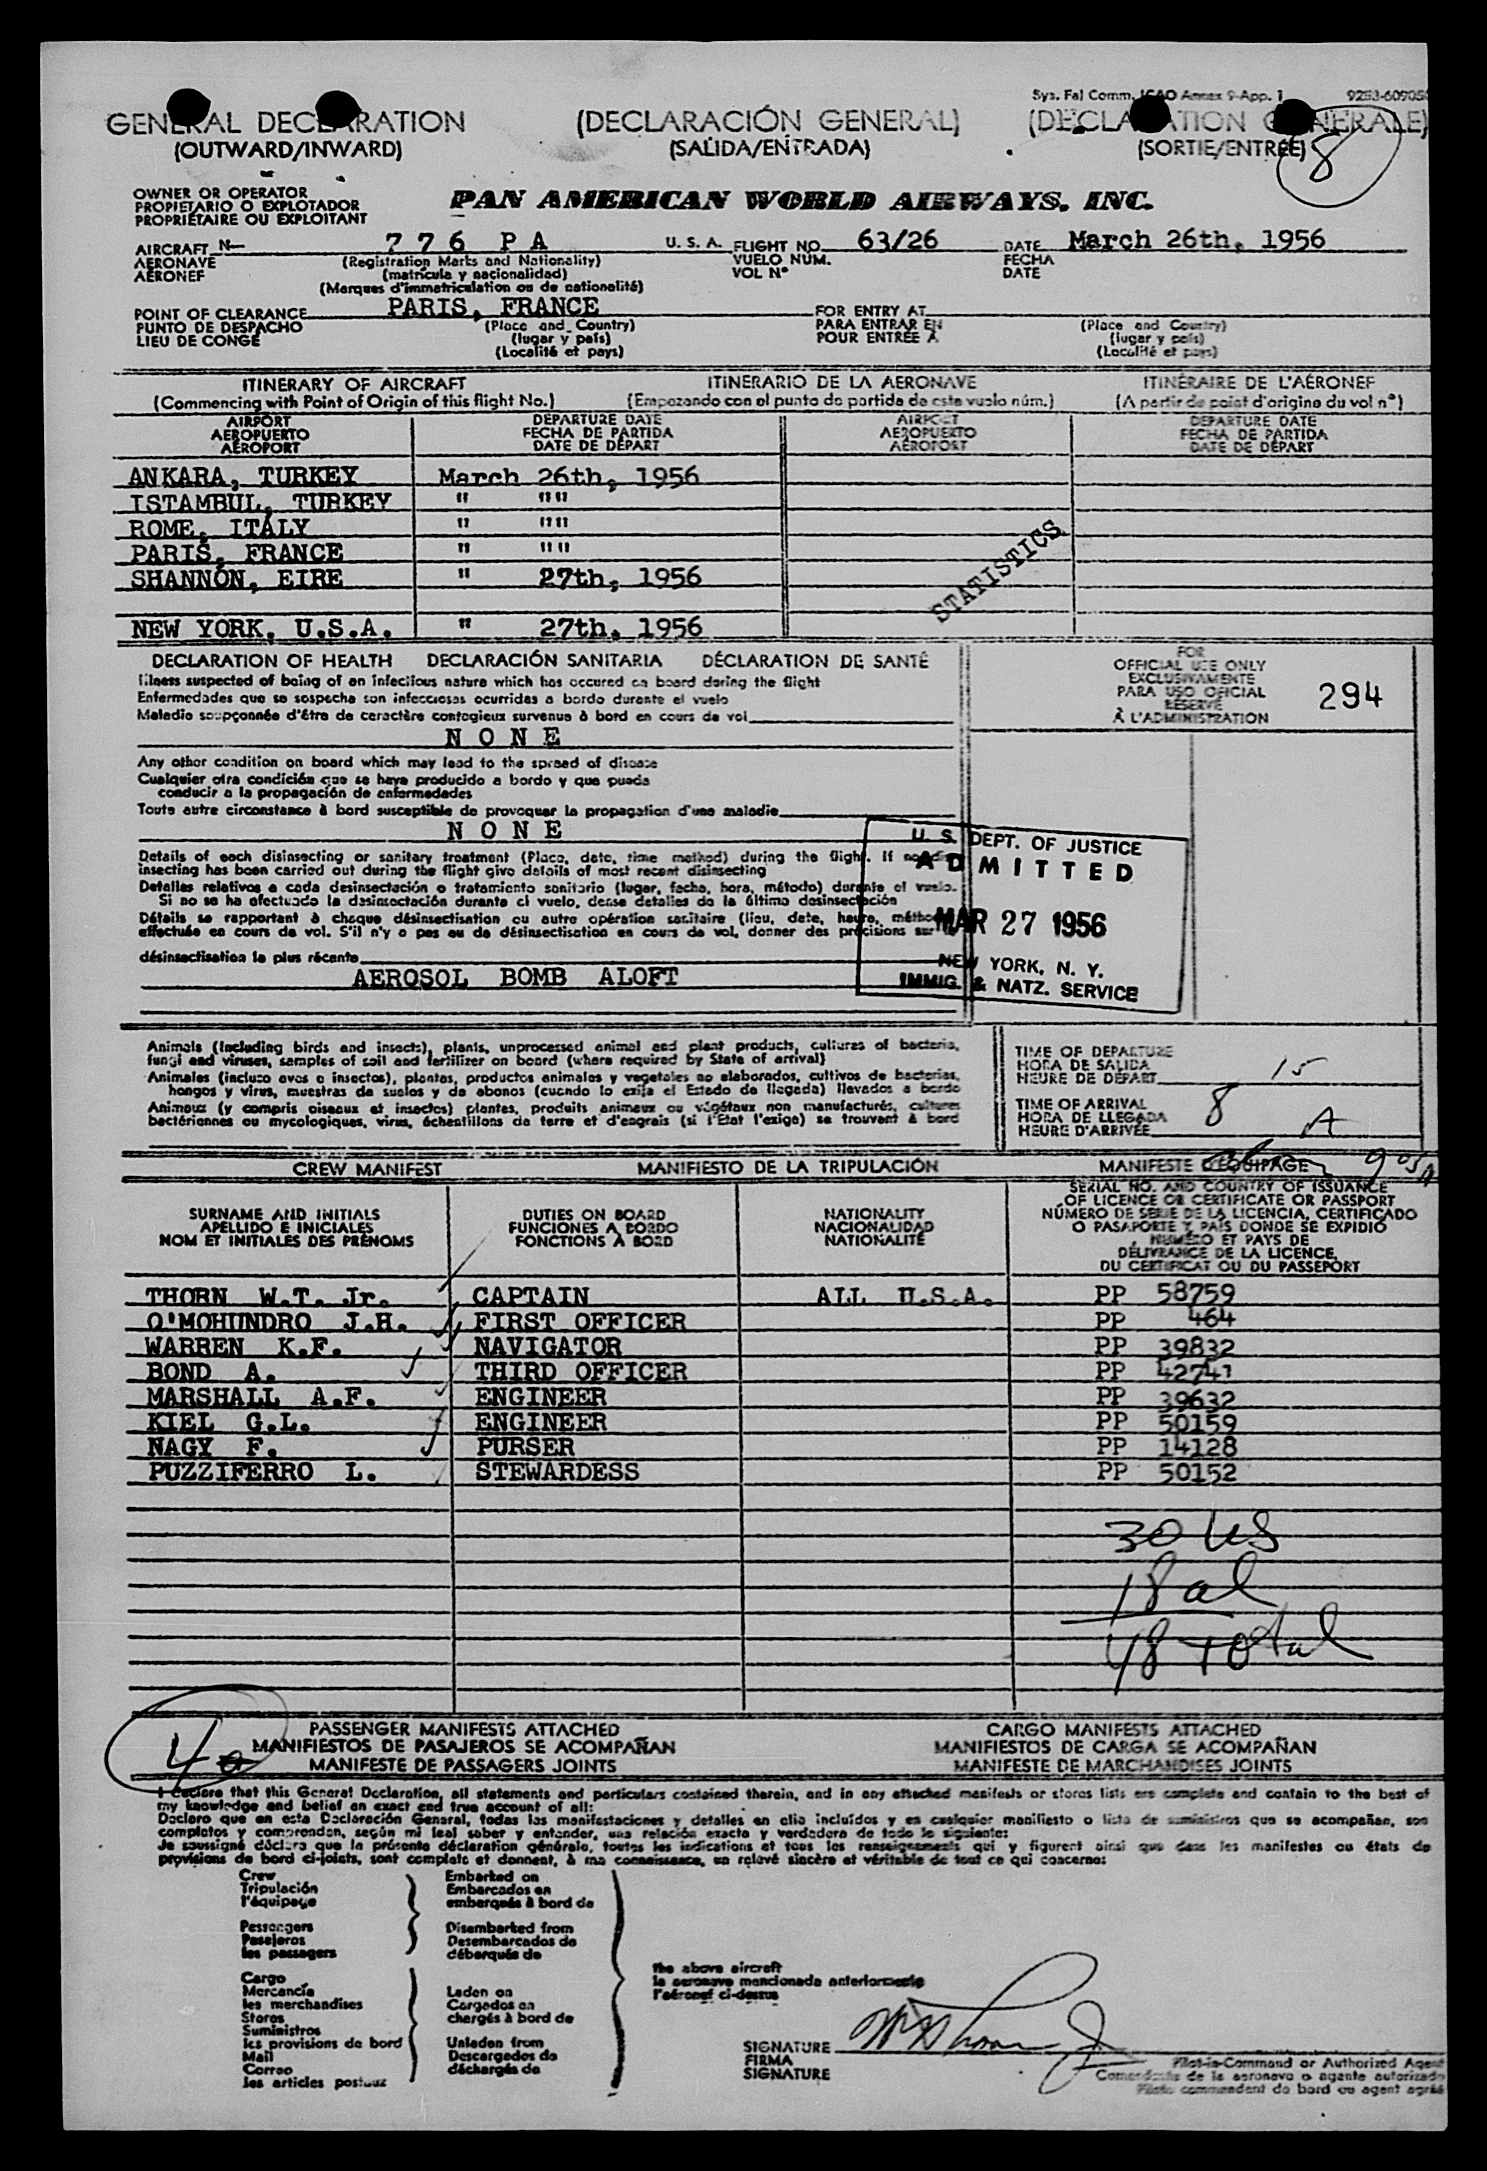 Sys. Fal Comm. ICAO Annex 9-App. 1 9253-60905
GENERAL DECLARATION (DECLARACIÓN GENERAL) (DÉCLARATION GÉNÉRALE)
(OUTWARD/INWARD) (SALIDA/ENTRADA) (SORTIE/ENTRÉE)
8
OWNER OR OPERATOR
PROPIETARIO O EXPLOTADOR
PROPRIÉTAIRE OU EXPLOITANT
PAN AMERICAN WORLD AIRWAYS, INC.
AIRCRAFT N— 776 PA U. S. A. FLIGHT NO. 63/26 DATE March 26th, 1956
AERONAVE (Registration Marks and Nationality) VUELO NÚM. FECHA
AÉRONEF (matrícula y nacionalidad) VOL Nº DATE
(Marques d'immatriculation ou de nationalité)
POINT OF CLEARANCE PARIS, FRANCE FOR ENTRY AT
PUNTO DE DESPACHO (Place and Country) PARA ENTRAR EN (Place and Country)
LIEU DE CONGÉ (lugar y país) POUR ENTRÉE À (lugar y país)
(Localité et pays) (Localité et pays)
ITINERARY OF AIRCRAFT ITINERARIO DE LA AERONAVE ITINÉRAIRE DE L'AÉRONEF
(Commencing with Point of Origin of this flight No.) (Empezando con el punto de partida de este vuelo núm.) (A partir de point d'origine du vol nº)
AIRPORT DEPARTURE DATE AIRPORT DEPARTURE DATE
AEROPUERTO FECHA DE PARTIDA AEROPUERTO FECHA DE PARTIDA
AÉROPORT DATE DE DÉPART AÉROPORT DATE DE DÉPART
ANKARA, TURKEY March 26th, 1956
ISTAMBUL, TURKEY " ""
ROME, ITALY " ""
PARIS, FRANCE " ""
SHANNON, EIRE " 27th, 1956
STATISTICS
NEW YORK, U.S.A. " 27th, 1956
DECLARATION OF HEALTH DECLARACIÓN SANITARIA DÉCLARATION DE SANTÉ
Illness suspected of being of an infectious nature which has occured on board during the flight
Enfermedades que se sospecha son infecciosas ocurridas a bordo durante el vuelo
Maladie soupçonnée d'être de caractère contagieux survenue à bord en cours de vol
NONE
FOR
OFFICIAL USE ONLY
EXCLUSIVAMENTE
PARA USO OFICIAL
RÉSERVÉ
À L'ADMINISTRATION
294
Any other condition on board which may lead to the spread of disease
Cualquier otra condición que se haya producido a bordo y que pueda
conducir a la propagación de enfermedades
Toute autre circonstance à bord susceptible de provoquer la propagation d'une maladie
NONE
Details of each disinsecting or sanitary treatment (Place, date, time method) during the flight. If no
insecting has been carried out during the flight give details of most recent disinsecting
Detalles relativos a cada desinsectación o tratamiento sanitario (lugar, fecha, hora, método) durante el vuelo.
Si no se ha efectuado la desinsectación durante el vuelo, dense detalles de la última desinsectación
Détails se rapportant à chaque désinsectisation ou autre opération sanitaire (lieu, date, heure,
effectuée en cours de vol. S'il n'y a pas eu de désinsectisation en cours de vol, donner des précisions sur
désinsectisation la plus récente
AEROSOL BOMB ALOFT
U. S. DEPT. OF JUSTICE
ADMITTED
MAR 27 1956
NEW YORK, N. Y.
IMMIG. & NATZ. SERVICE
Animals (including birds and insects), plants, unprocessed animal and plant products, cultures of bacteria,
fungi and viruses, samples of soil and fertilizer on board (where required by State of arrival)
Animales (incluso aves o insectos), plantas, productos animales y vegetales no elaborados, cultivos de bacterias,
hongos y virus, muestras de suelos y de abonos (cuando lo exija el Estado de llegada) llevados a bordo
Animaux (y compris oiseaux et insectes) plantes, produits animaux ou végétaux non manufacturés, cultures
bactériennes ou mycologiques, virus, échantillons de terre et d'engrais (si l'État l'exige) se trouvant à bord
TIME OF DEPARTURE
HORA DE SALIDA
HEURE DE DÉPART 15
TIME OF ARRIVAL
HORA DE LLEGADA 8 A
HEURE D'ARRIVÉE
905A
CREW MANIFEST MANIFIESTO DE LA TRIPULACIÓN MANIFESTE D'ÉQUIPAGE
SURNAME AND INITIALS DUTIES ON BOARD NATIONALITY SERIAL NO. AND COUNTRY OF ISSUANCE
OF LICENCE OR CERTIFICATE OR PASSPORT
APELLIDO E INICIALES FUNCIONES A BORDO NACIONALIDAD NÚMERO DE SERIE DE LA LICENCIA, CERTIFICADO
O PASAPORTE Y PAÍS DONDE SE EXPIDIÓ
NOM ET INITIALES DES PRÉNOMS FONCTIONS À BORD NATIONALITÉ NUMÉRO ET PAYS DE
DÉLIVRANCE DE LA LICENCE,
DU CERTIFICAT OU DU PASSEPORT
THORN W.T. Jr. CAPTAIN ALL U.S.A. PP 58759
O'MOHUNDRO J.H. FIRST OFFICER PP 464
WARREN K.F. NAVIGATOR PP 39832
BOND A. THIRD OFFICER PP 42741
MARSHALL A.F. ENGINEER PP 39632
KIEL G.L. ENGINEER PP 50159
NAGY F. PURSER PP 14128
PUZZIFERRO L. STEWARDESS PP 50152
30 US
18 al
48 total
4
PASSENGER MANIFESTS ATTACHED CARGO MANIFESTS ATTACHED
MANIFIESTOS DE PASAJEROS SE ACOMPAÑAN MANIFIESTOS DE CARGA SE ACOMPAÑAN
MANIFESTE DE PASSAGERS JOINTS MANIFESTE DE MARCHANDISES JOINTS
I declare that this General Declaration, all statements and particulars contained therein, and in any attached manifests or stores lists are complete and contain to the best of
my knowledge and belief an exact and true account of all:
Declaro que en esta Declaración General, todas las manifestaciones y detalles en ella incluidos y en cualquier manifiesto o lista de suministros que se acompañan, son
completos y comprenden, según mi leal saber y entender, una relación exacta y verdadera de todo lo siguiente:
Je soussigné déclare que la présente déclaration générale, toutes les indications et tous les renseignements qui y figurent ainsi que dans les manifestes ou états de
provisions de bord ci-joints, sont complets et donnent, à ma connaissance, un relevé sincère et véritable de tout ce qui concerne:
Crew Embarked on
Tripulación Embarcados en
l'équipage embarqués à bord de
Passengers Disembarked from
Pasajeros Desembarcados de
les passagers débarqués de
the above aircraft
la aeronave mencionada anteriormente
l'aéronef ci-dessus
Cargo
Mercancía Laden on
les merchandises Cargados en
Stores chargés à bord de
Suministros
les provisions de bord Unladen from
Mail Descargados de
Correo déchargés de
les articles postaux
SIGNATURE
FIRMA
SIGNATURE
Pilot-in-Command or Authorized Agent
Comandante de la aeronave o agente autorizado
Pilote commandant de bord ou agent agréé